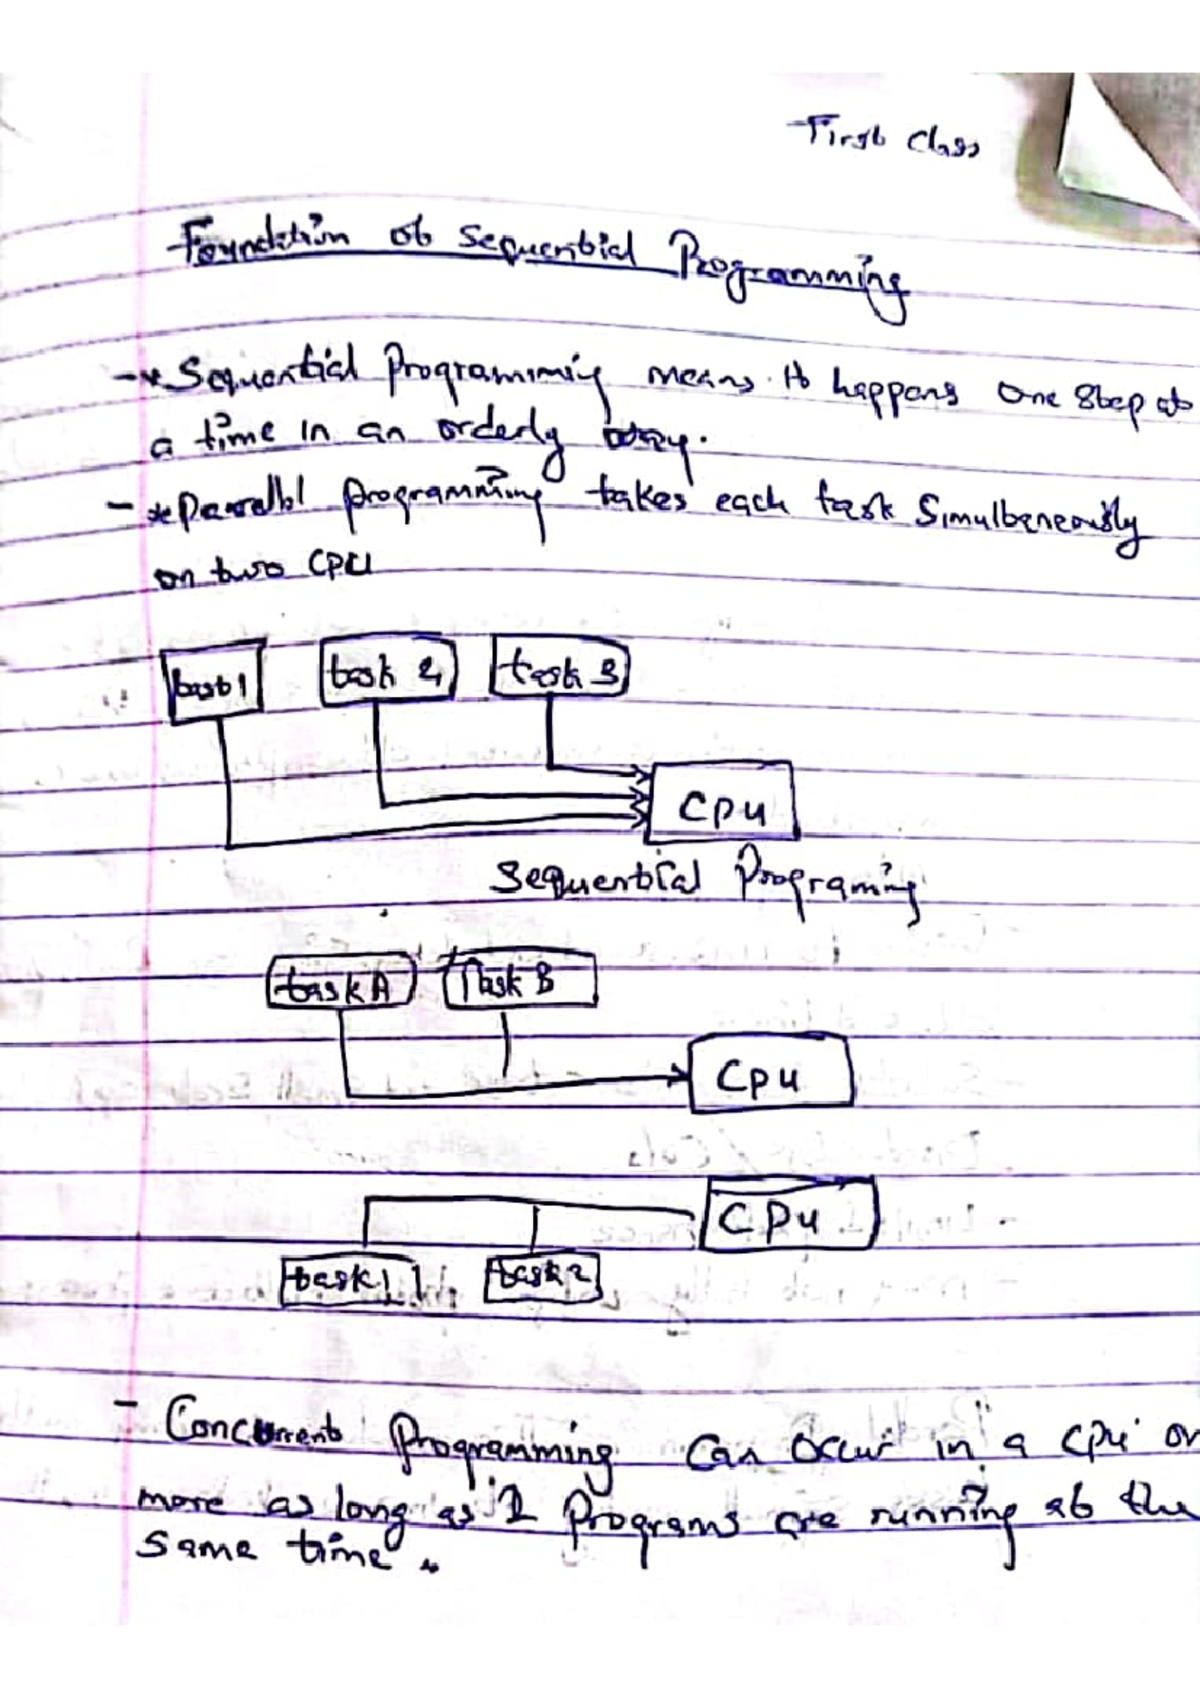 First Class
Foundation of Sequential Programming
-* Sequential Programming means it happens one step at
a time in an orderly way.
-* Parallel programming takes each task Simultaneously
on two CPU
task 1 task 2 task 3
CPU
Sequential Programing
task A Task B
CPU
CPU
task 1 task 2
- Concurrent Programming can occur in a CPU or
more as long as 2 Programs are running at the
same time.